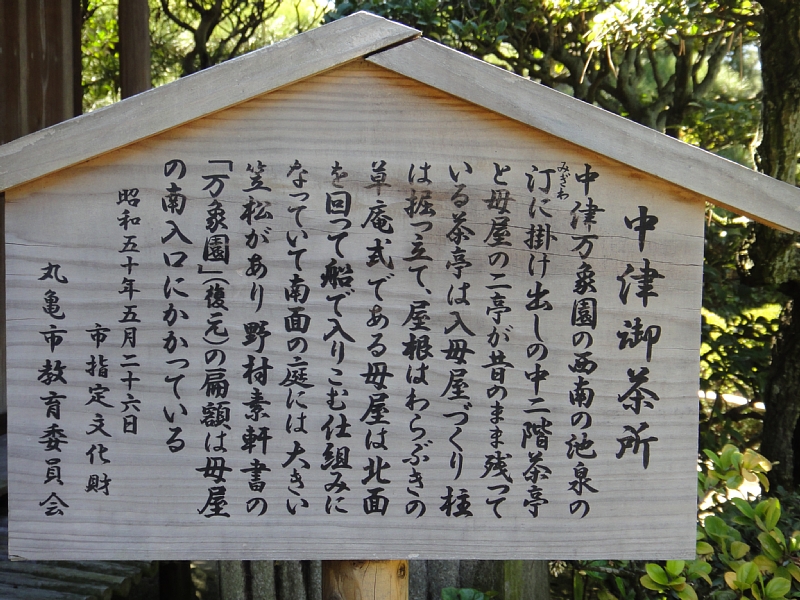 中津御茶所
中津万象園の西南の池泉の
汀に掛け出しの中二階茶亭
みぎわ
と母屋の二亭が昔のまま残って
いる茶亭は入母屋づくり柱
は掘っ立て、屋根はわらぶきの
草庵式である母屋は北面
を回って船で入りこむ仕組みに
なっていて南面の庭には大きい
笠松があり野村素軒書の
「万象園」(復元)の扁額は母屋
の南入口にかかっている
昭和五十年五月二十六日
市指定文化財
丸亀市教育委員会